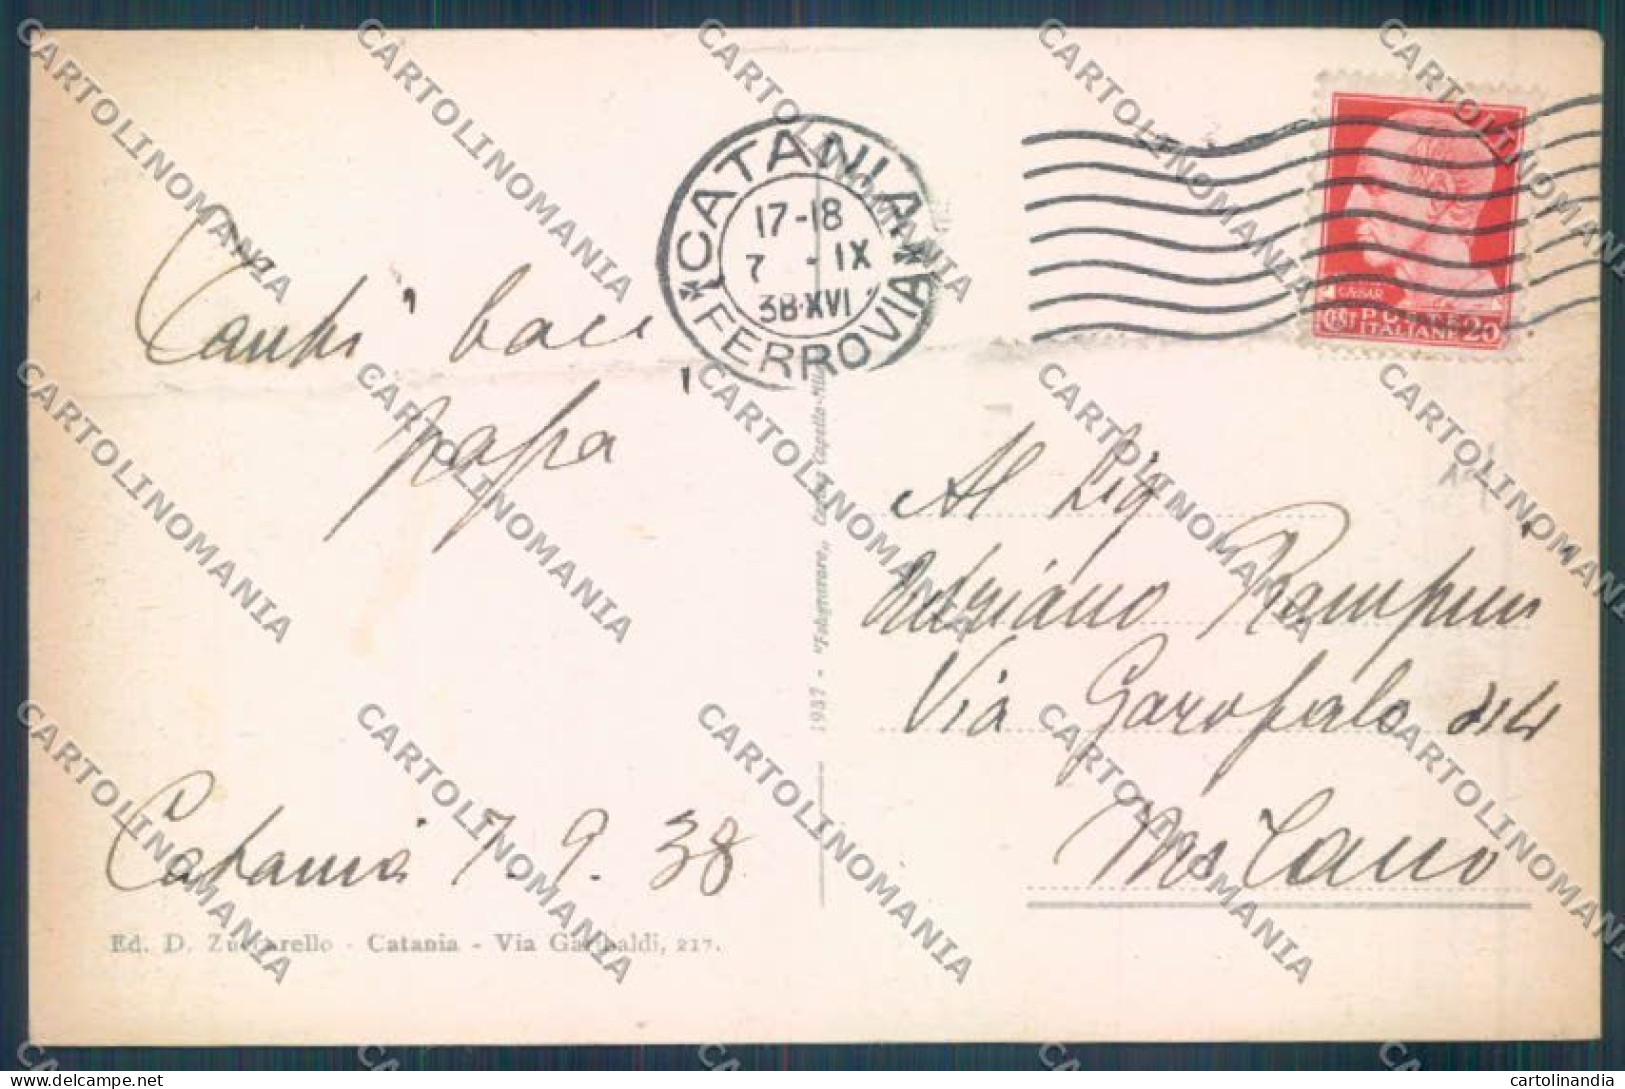 CATANIA
17-18
7 - IX
38·XVI
FERROVIA
CAESAR
POSTE
ITALIANE 20
Tanti baci
papa
Al Sig
Adriano Rampini
Via Garofalo
Milano
Catania 7.9.38
1937 -
Ed. D. Zuccarello - Catania - Via Garibaldi, 217.
CARTOLINOMANIA
cartolinandia